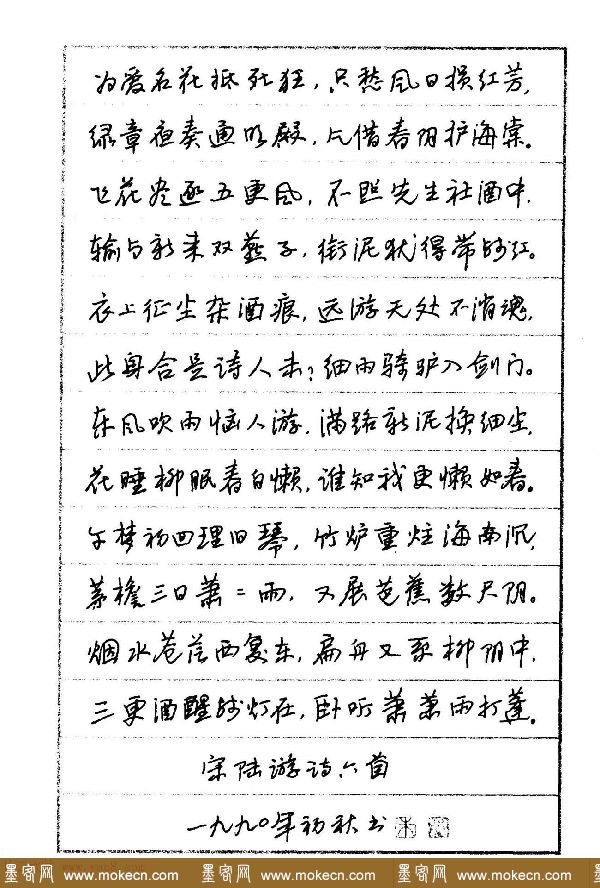 为爱名花抵死狂，只愁风日损红芳，
绿章夜奏通明殿，乞借春阴护海棠。
飞花尽逐五更风，不照先生社酒中，
输与新来双燕子，衔泥犹得带残红。
衣上征尘杂酒痕，远游无处不消魂，
此身合是诗人未？细雨骑驴入剑门。
东风吹雨恼人游，满路新泥换细尘，
花睡柳眠春自懒，谁知我更懒如春。
午梦初回理旧琴，竹炉重炷海南沉，
茅檐三日萧〓雨，又展芭蕉数尺阴。
烟水苍茫西复东，扁舟又系柳阴中，
三更酒醒残灯在，卧听萧萧雨打蓬。
宋陆游诗六首
一九九〇年初秋书
墨客网 www.mokecn.com 墨客网 www.mokecn.com 墨客网 www.mokecn.com